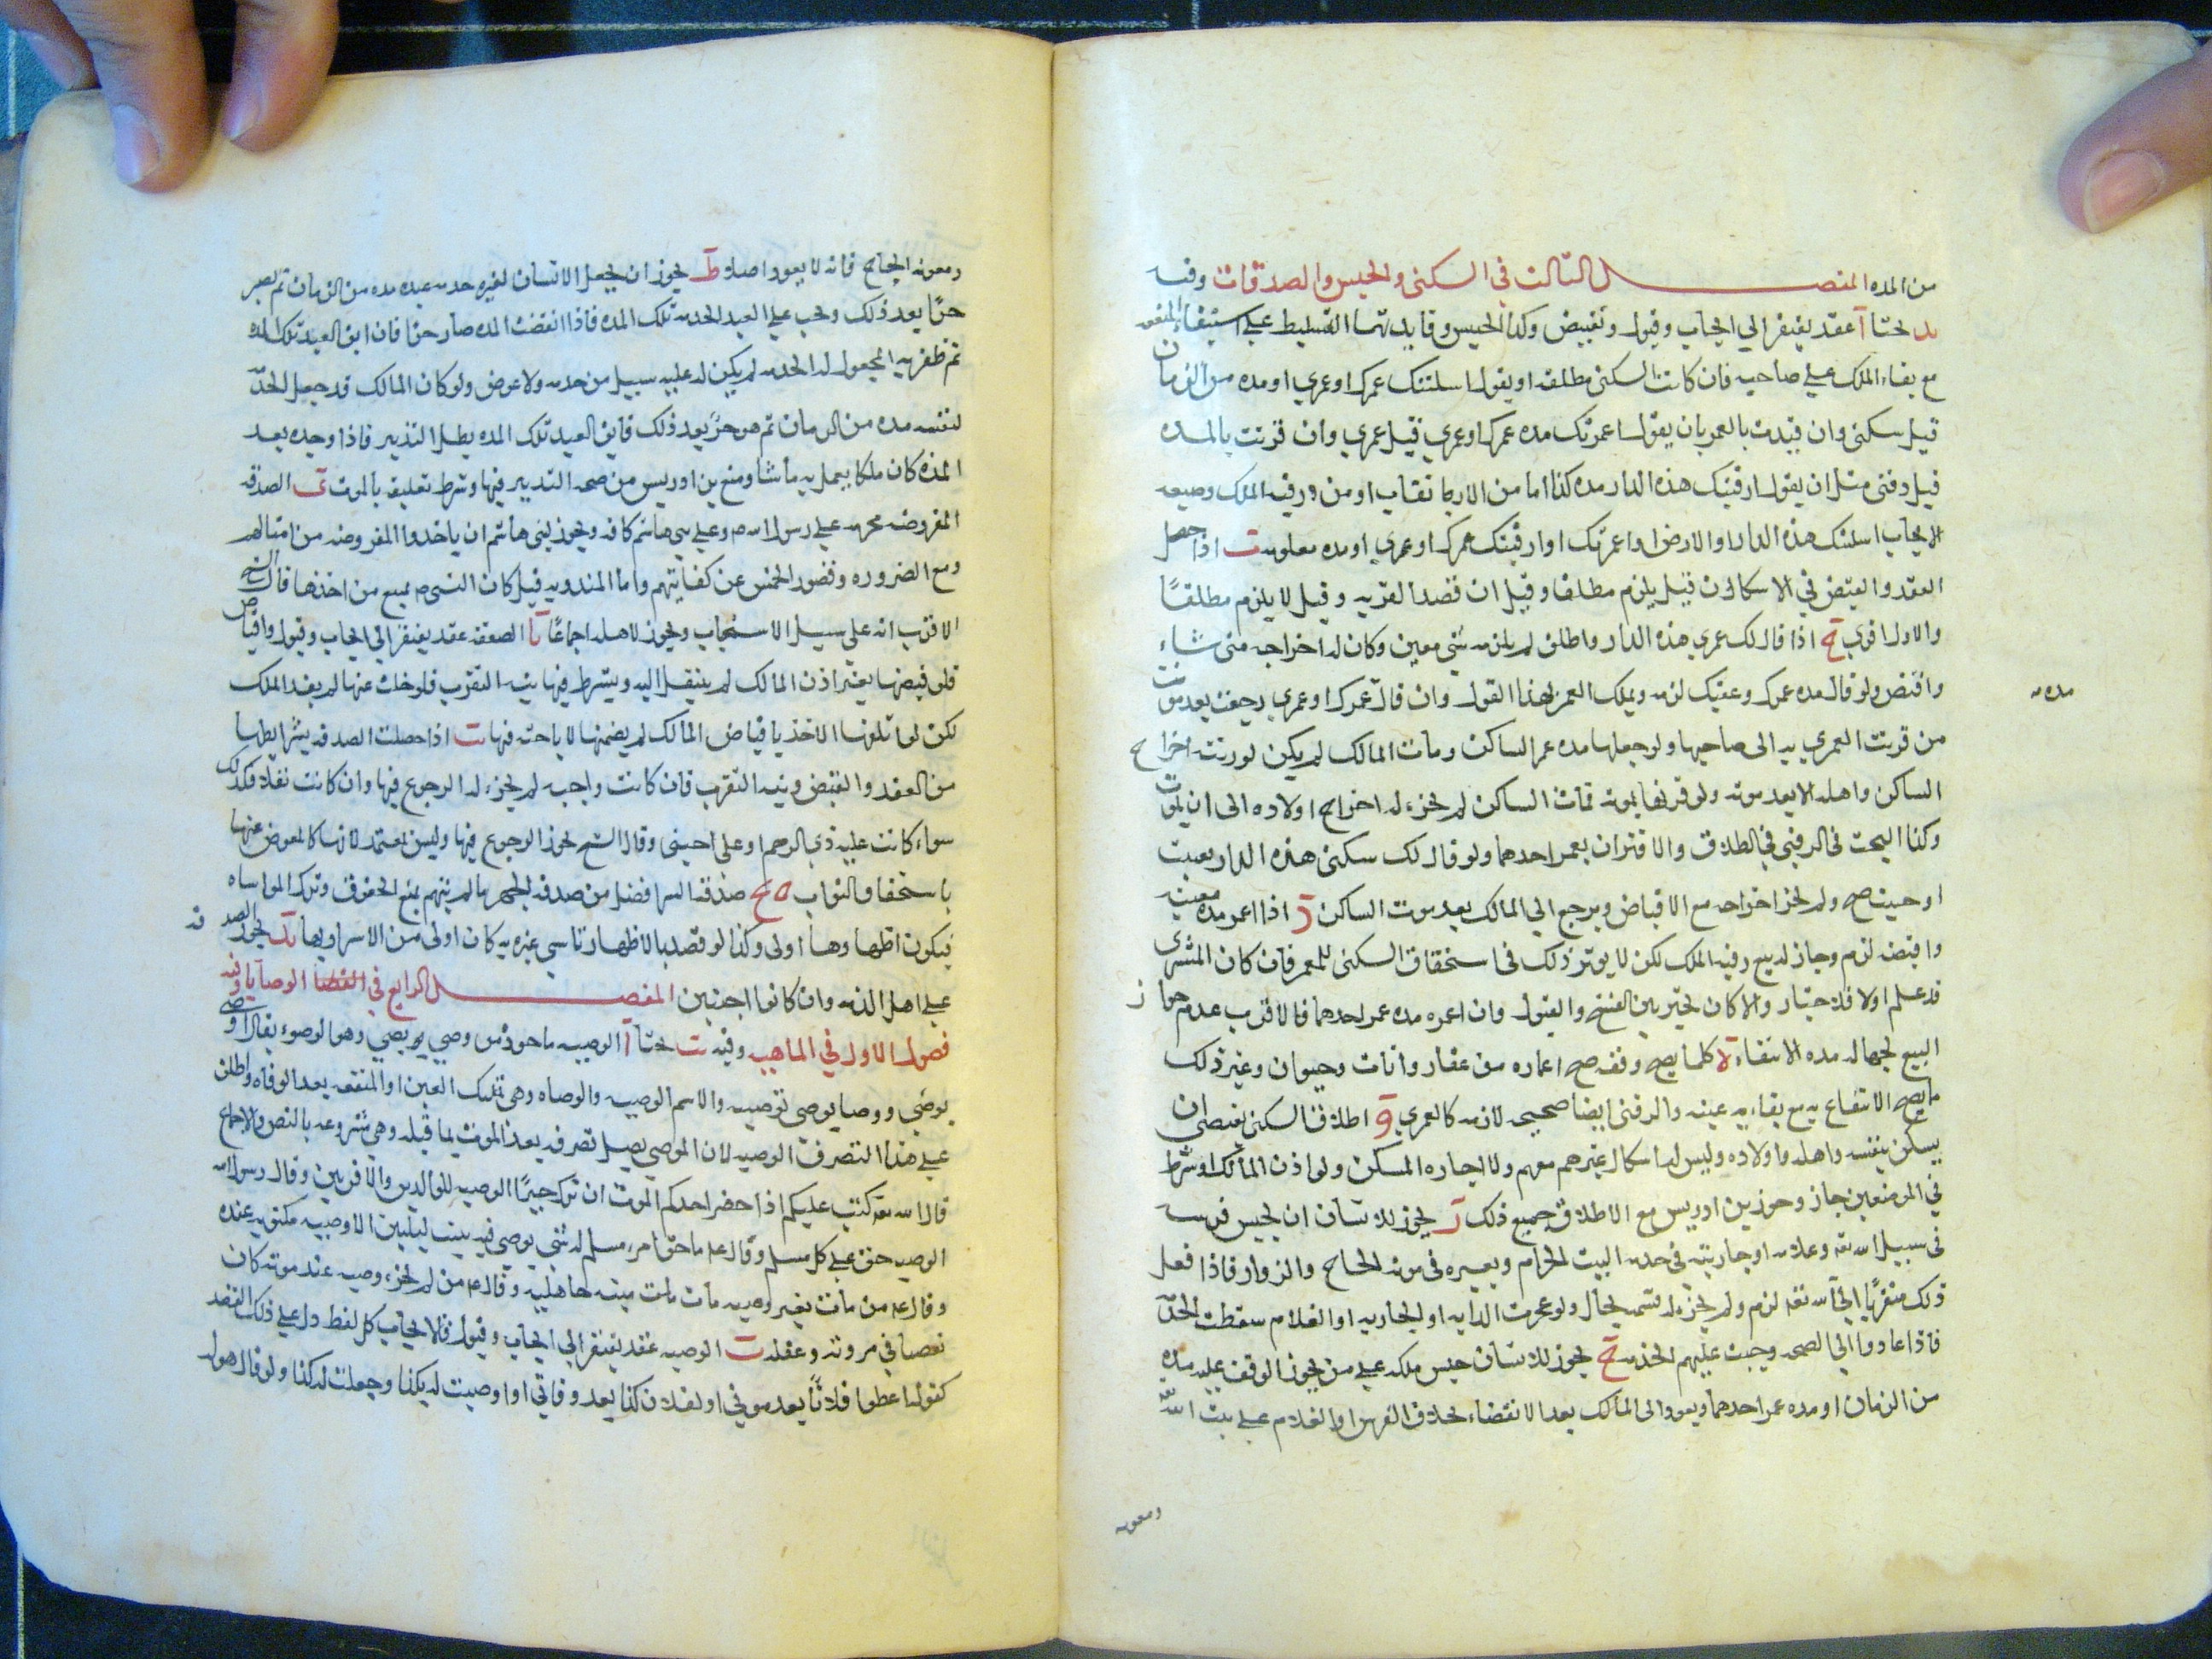 من المده المقصـــــــــــــل الثالث في السكنى والحبس والصدقات وفيه
يد بحثا آ عقد يفتقر الى ايجاب وقبول وتقبيض وكذا الحبس وفايدتهما التسليط على استيفاء المنفعه
مع بقاء الملك على صاحبه فان كانت السكنى مطلقه او يقول اسكنتك عمرك او عمري او مده من الزمان
قيل سكنى وان قيدت بالعمر بان يقول اعمرتك مده عمرك او عمري قيل عمرى وان قرنت بالمده
قيل رقبى مثل ان يقول ارقبتك هذه الدار مده كذا اما من الارتقاب او من رقبه الملك وصيغه
الايجاب اسكنتك هذه الدار او الارض او اعمرتك او ارقبتك عمرك او عمري او مده معلومه ب اذا حصل
العقد والقبض في الاسكان قيل يلزم مطلقا وقيل ان قصد القربه وقيل لا يلزم مطلقًا
والاول اقوى ج اذا قال لك عمرى هذه الدار واطلق لم يلزمه شي معين وكان له اخراجه متى شاء
واقبض ولو قال مده عمرك وعقبك لزمه ويملك العمر بهذا القول وان قال عمرك او عمري رجعت بعد موت
من قرنت العمرى به الى صاحبها ولو جعلها مده عمر الساكن ومات المالك لم يكن لورثته اخراج
الساكن واهله الا بعد موته ولو قرنها بموته فمات الساكن لم يجز له اخراج اولاده الى ان يموت
وكذا البحث في الرقبى في الطلاق والاقتران بعمر احدهما ولو قال لك سكنى هذه الدار بعيت
او حييت صح ولم يجز اخراجه مع الاقباض ويرجع الى المالك بعد موت الساكن د اذا اعمر مده معينه
واقبض لزم وجاز له بيع رقبه الملك لكن لا يوثر ذلك في استحقاق السكنى للمعمر فان كان المشتري
قد علم اولا فلا خيار والا كان يخير بين الفسخ والقبول وان اعمره مده عمر احدهما فالاقرب عدم جواز
البيع لجهاله مده الانتفاء ه كلما يصح وقفه صح اعماره من عقار واثاث وحيوان وغير ذلك
ما يصح الانتفاع به مع بقاء عينه والرقبى ايضا صحيحه لازمه كالعمري و اطلاق السكنى يقتضي ان
يسكن بنفسه واهله واولاده وليس له اسكان غيرهم معهم ولا اجاره المسكن ولو اذن المالك او شرط
في الموضعين جاز وجوز بن ادريس مع الاطلاق جميع ذلك ز يجوز للانسان ان يحبس فرسه
في سبيل الله تعه وغلامه او جاريته في خدمه البيت الحرام وبعيره في معونه الحاج والزوار فاذا فعل
ذلك متقربًا الى الله تعه لزم ولم يجز له تغييره بحال ولو عجزت الدابه او الجاريه او الغلام سقطت الخدمه
فاذا عادوا الى الصحه وجبت عليهم الخدمه ح يجوز للانسان حبس ملكه على من يجوز الوقف عليه مده
من الزمان او مده عمر احدهما ويعود الى المالك بعد الانقضاء بخلاف الفرس او الغلام على بيت الله
مده مه
ومعونه
ومعونه الحاج فانه لا يعود اصلا ط يجوز ان يجعل الانسان لغيره خدمه عبده مده من الزمان ثم يصير
حرًا بعد ذلك ويجب على العبد الخدمه تلك المده فاذا انقضت المده صار حرًا فان ابق العبد تلك المده
ثم ظفر به المجعول له الخدمه لم يكن له عليه سبيل من خدمه ولا عوض ولو كان المالك قد جعل الخدمه
لنفسه مده من الزمان ثم هو حرٌ بعد ذلك فابق العبد تلك المده بطل التدبير فاذا وجده بعد
المده كان ملكا يعمل به ما شا ومنع بن ادريس من صحه التدبير فيها وشرط تعليقه بالموت ى الصدقه
المفروضه محرمه على رسول الله ص وعلى بني هاشم كافه ويجوز لبني هاشم ان ياخذوا المفروضه من امثالهم
ومع الضروره وقصور الخمس عن كفايتهم واما المندوبه قيل كان النبي ص يمتنع من اخذها قال الشيخ
الاقرب انه على سبيل الاستحباب ويجوز لاهله اجماعًا يا الصدقه عقد يفتقر الى ايجاب وقبول واقباض
فلو قبضها بغير اذن المالك لم ينتقل اليه ويشترط فيها نيه التقرب فلو خلت عنها لم يفد الملك
لكن لو اتلفها الاخذ باقباض المالك لم يضمنها لاباحته فيها يب اذا حصلت الصدقه بشرايطها
من العقد والقبض ونيه التقرب فان كانت واجبه لم يجز له الرجوع فيها وان كانت نفلا فكذلك
سواء كانت عليه ذي الرحم او على اجنبى وقال الشيخ يجوز الرجوع فيها وليس بمعتمد لانها كالمعوض عنها
باستحقاق الثواب يج صدقه السر افضل من صدقه الجهر ما لم يتهم بمنع الحقوق وترك المواساه
فيكون اظهارها اولى وكذا لو قصد بالاظهار تاسي غيره به كان اولى من الاسرار بها يد يجوز الصدقه
على اهل الذمه وان كانوا اجنبيين المقصــــــــــــل الرابع في القضا الوصايا وفيه
فصول الاول في الماهيه وفيه ب بحثا آ الوصيه ماخوذ من وصي يوصي وهو الوصوء يقال اوصى
يوصي ووصا يوصي توصيه والاسم الوصيه والوصاه وهي تمليك العين او المنفعه بعد الوفاه واطلق
على هذا التصرف الوصيه لان الموصي يصل تصرفه بعد الموت بما قبله وهي مشروعه بالنص والاجماع
قال الله تعه كتب عليكم اذا حضر احدكم الموت ان ترك خيرًا الوصيه للوالدين والاقربين وقال رسول الله
الوصيه حق على كل مسلم وقال عم ما حق امرء مسلم له شي يوصي فيه يبيت ليلتين الا وصيته مكتوبه عنده
وقال عم من مات بغير وصيه مات ميته جاهليه وقال عم من لم يحز وصيه عند موته كان
نقصا في مروته وعقله ب الوصيه عقد يفتقر الى ايجاب وقبول فالايجاب كل لفظ دل على ذلك القصد
كقوله اعطوا فلانًا بعد موتي او لفلان كذا بعد وفاتي او اوصيت له بكذا وجعلت له كذا ولو قال هو له